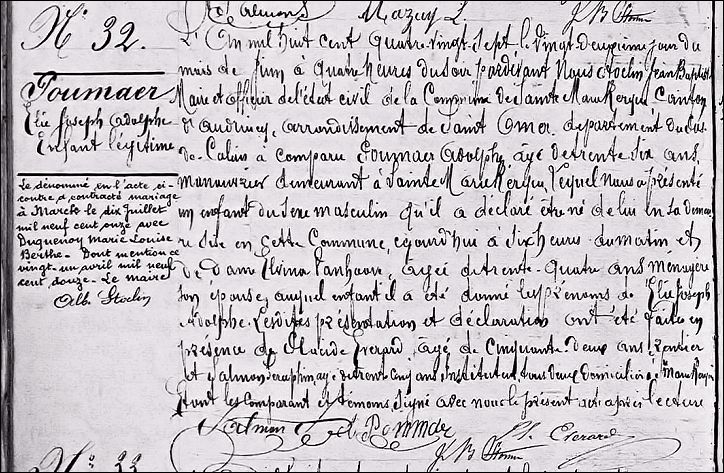 Salmon S Mazuy L. J B Stoclin
N° 32.
Foumaer
Elie Joseph Adolphe
Enfant légitime
Le dénommé en l'acte ci-
contre a contracté mariage
à Marck le dix Juillet
mil neuf cent onze avec
Duquenoy Marie Louise
Berthe - Dont mention ce
vingt-un avril mil neuf
cent douze - Le maire
Alb. Stoclin
L'An mil huit cent quatre-vingt-sept le vingt deuxième jour du
mois de Juin à quatre heures du soir pardevant Nous Stoclin Jean Baptiste
Maire et officier de l'état civil de la Commune de Sainte Marie Kerque, Canton
d'Audruicq, arrondissement de Saint Omer, département du Pas-
de-Calais a comparu Foumaer Adolphe âgé de trente six ans,
manouvrier demeurant à Sainte Marie Kerque, lequel nous a présenté
un enfant du sexe masculin qu'il a déclaré être né de lui en sa demeu
re sise en cette Commune, cejourd'hui à six heures du matin et
de dame Elvina Vanhove, âgée de trente-quatre ans ménagère
son épouse, auquel enfant il a été donné les prénoms de Elie Joseph
Adolphe. Lesdites présentation et déclaration ont été faites en
présence de Placide Evrard, âgé de cinquante-deux ans, rentier
et Salmon Seraphin, âgé de trente cinq ans, Instituteur, tous deux domiciliés à Ste Marie Kerque
dont les Comparant et témoins signé avec nous le présent acte après lecture
Salmon S Foumaer J B Stoclin Pl. Evrard
N° 33